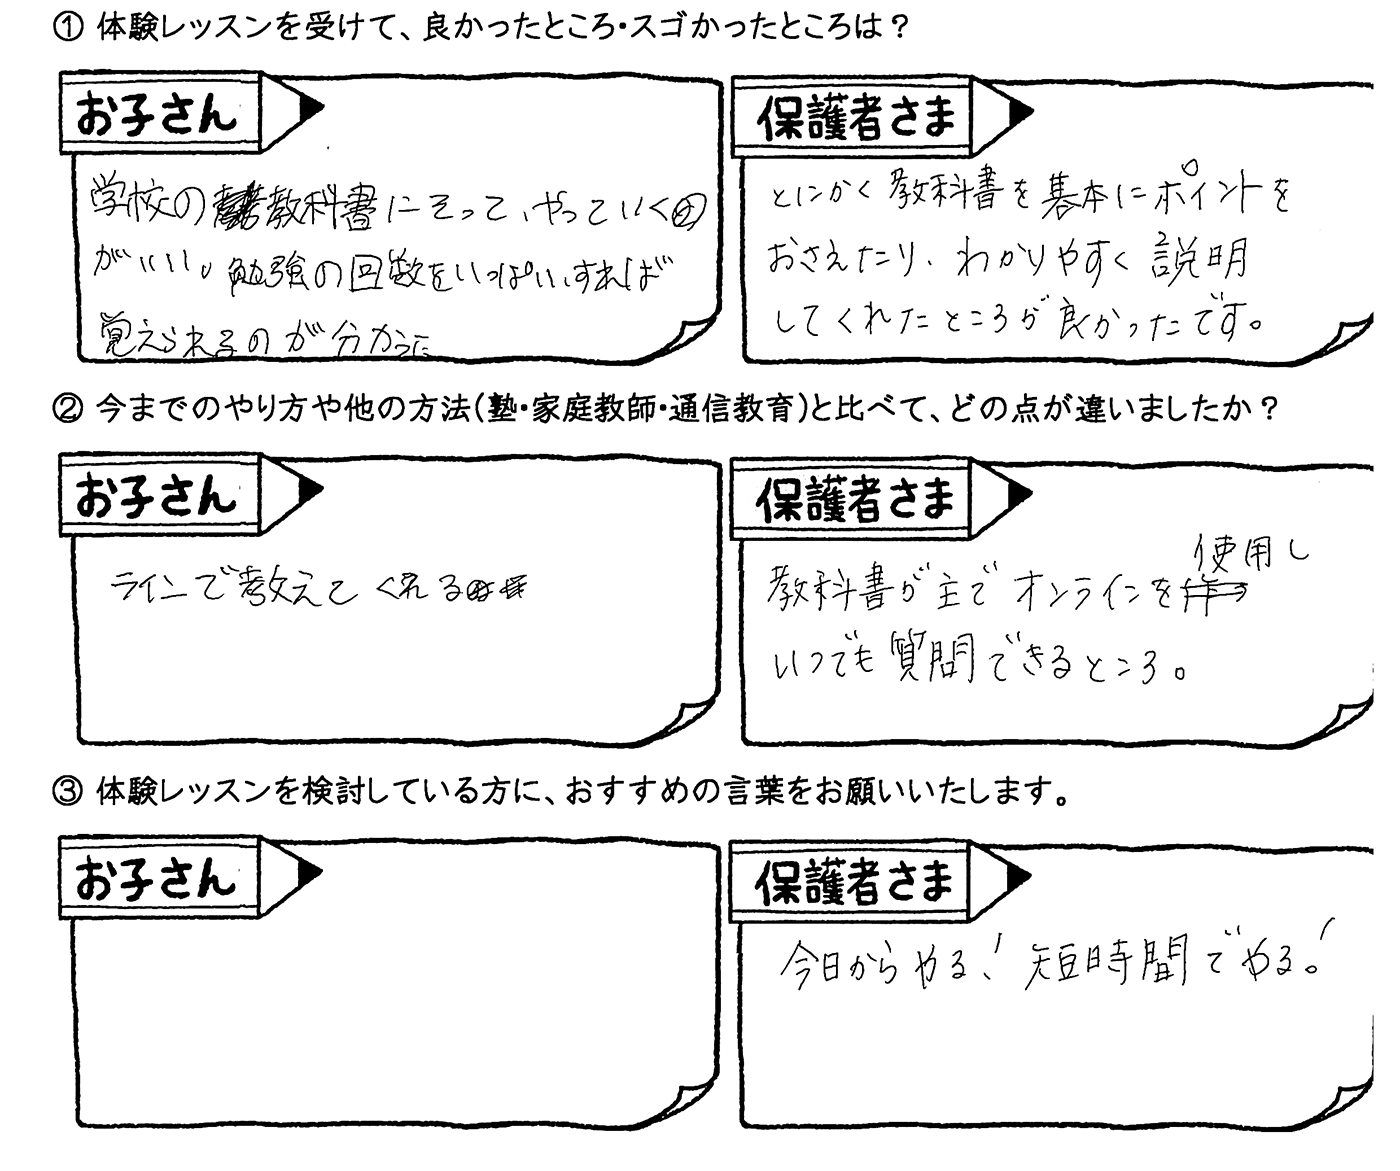 ① 体験レッスンを受けて、良かったところ・スゴかったところは？
お子さん
学校の教科書にそって、やっていくの
がいい。勉強の回数をいっぱいすれば
覚えられるのが分かった
保護者さま
とにかく教科書を基本にポイントを
おさえたり、わかりやすく説明
してくれたところが良かったです。
② 今までのやり方や他の方法(塾・家庭教師・通信教育)と比べて、どの点が違いましたか？
お子さん
ラインで教えてくれる
保護者さま
教科書が主でオンラインを使用し
いつでも質問できるところ。
③ 体験レッスンを検討している方に、おすすめの言葉をお願いいたします。
お子さん
保護者さま
今日からやる！短時間でやる！